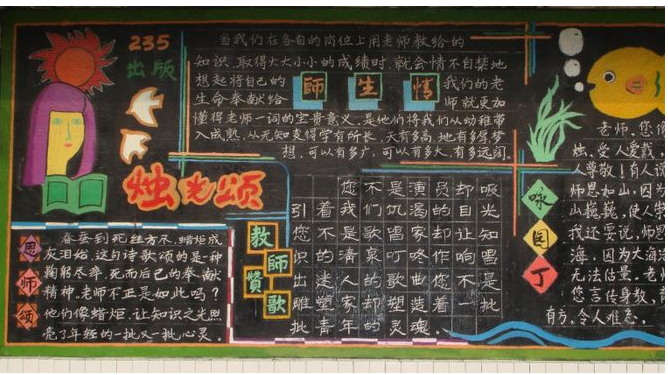 235
出版
当我们在各自的岗位上用老师教给的
知识,取得大大小小的成绩时,就会情不自禁地
想起将自己的
生命奉献给
師生情
我们的老
师就更加
懂得老师一词的宝贵意义,是他们将我们从幼稚带
入成熟,从无知变得学有所长,天有多高,地有多厚梦
想,可以有多广,可以有多大,有多远阔.
烛光颂
恩师颂
春蚕到死丝方尽,蜡炬成
灰泪始,这句诗歌颂的是一种
鞠躬尽瘁,死而后已的奉献
精神,老师不正是如此吗?
他们像蜡炬,让知识之光照
亮了年轻的一批又一批心灵.
教師贊歌
您不是演员却吸
引着我们饥渴的目光
您不是歌唱家却让知
识的清泉叮咚作响唱
出迷人的歌曲您不是
雕塑家却塑造着一批
批青年的灵魂.
咏园丁
老师,您
烛,受人爱戴,
人尊敬!有人说
师恩如山,因
山巍巍,使人
我还要说,师恩
海,因为大海
无法估量.老
您言传身教,
有方,令人难忘.